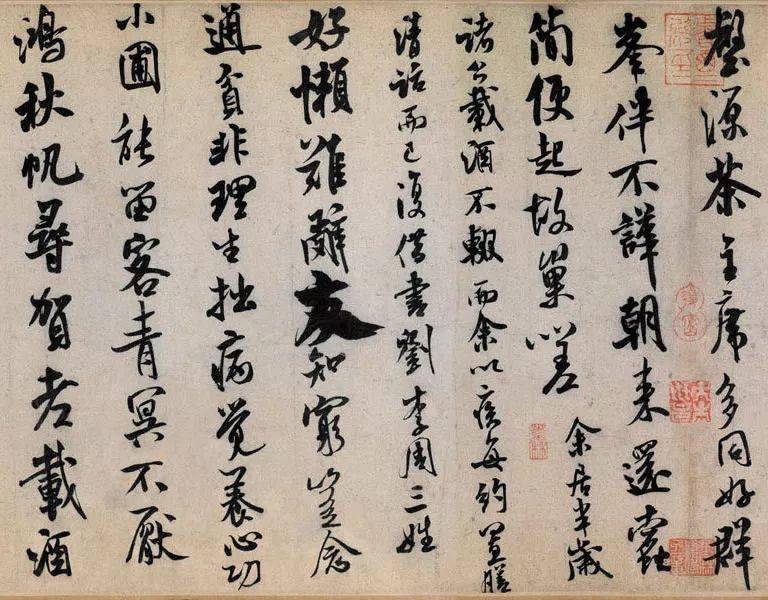 壑源茶主席多同好群
峯伴不譁朝来還蠹
簡便起故巢嗟余居半歲
諸公載酒不輟而余以疾每約置膳
清話而已復借書劉李周三姓
好懶難辭友知窮豈念
通貧非理生拙病覺養心功
小圃能留客青冥不厭
鴻秋帆尋賀老載酒